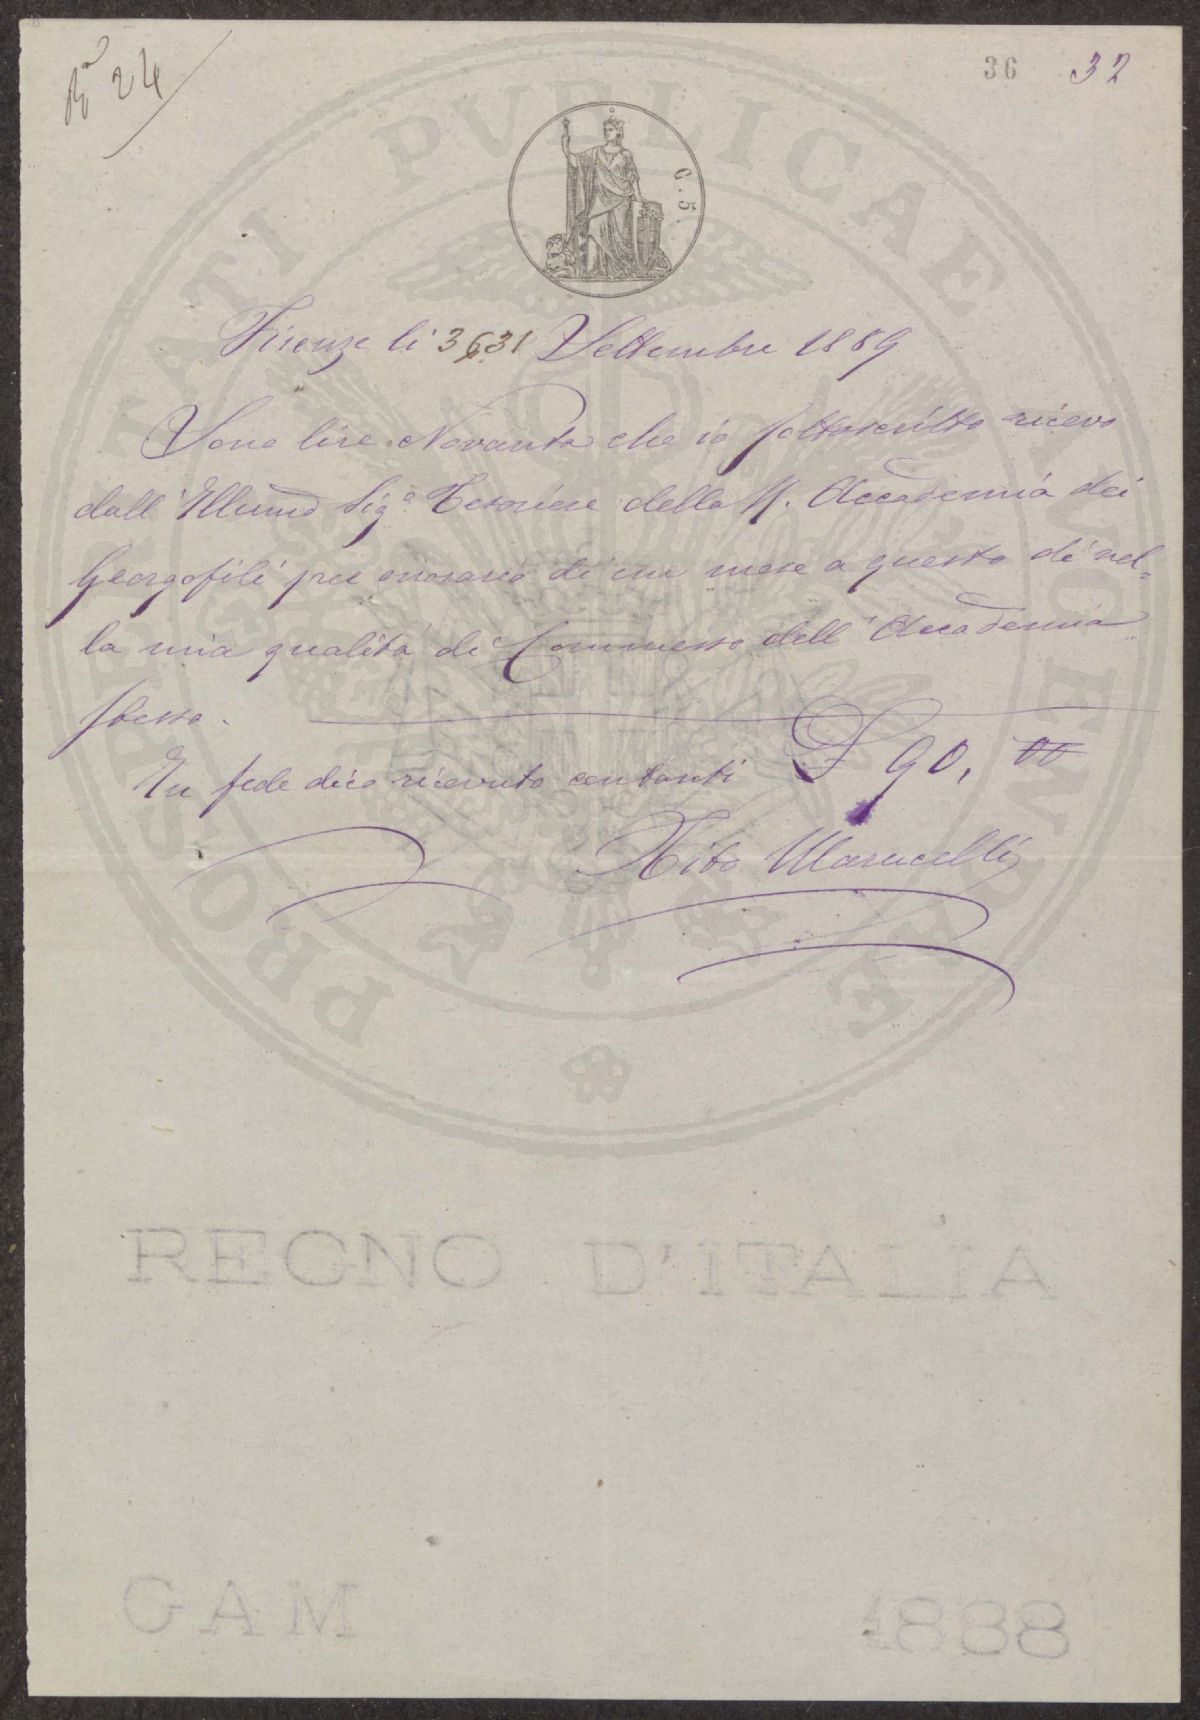 Ra 24
36 32
C. 5.
Firenze li Settembre 1889
Sono lire Novanta che io sottoscritto ricevo
dall'Illmo Sige Tesoriere della R. Accademia dei
Georgofili per onorario di un mese a questo dì nel=
la mia qualità di Commesso dell'Accademia
stessa.
In fede dico ricevuto contanti £ 90, 00
Tito Marucelli
PROSPERITATI PVBLICAE AVGENDAE
REGNO D'ITALIA
GAM 1888